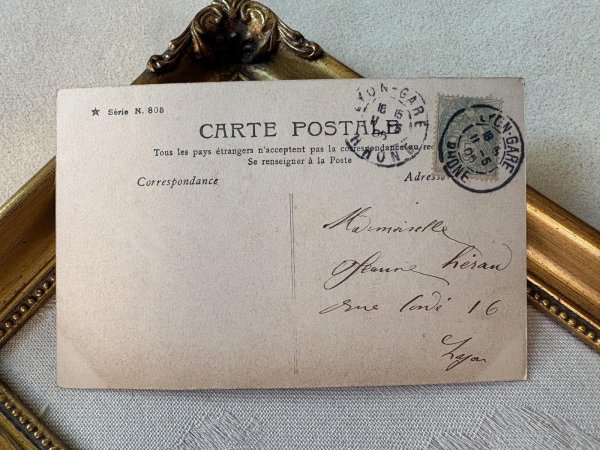 ★ Série N. 805
CARTE POSTALE
Tous les pays étrangers n'acceptent pas la correspondance au rec
Se renseigner à la Poste
Correspondance
Adresse
LYON-GARE
RHONE
LYON-GARE
RHONE
Mademoiselle
Jeanne Hérau
rue Condé 16
Lyon